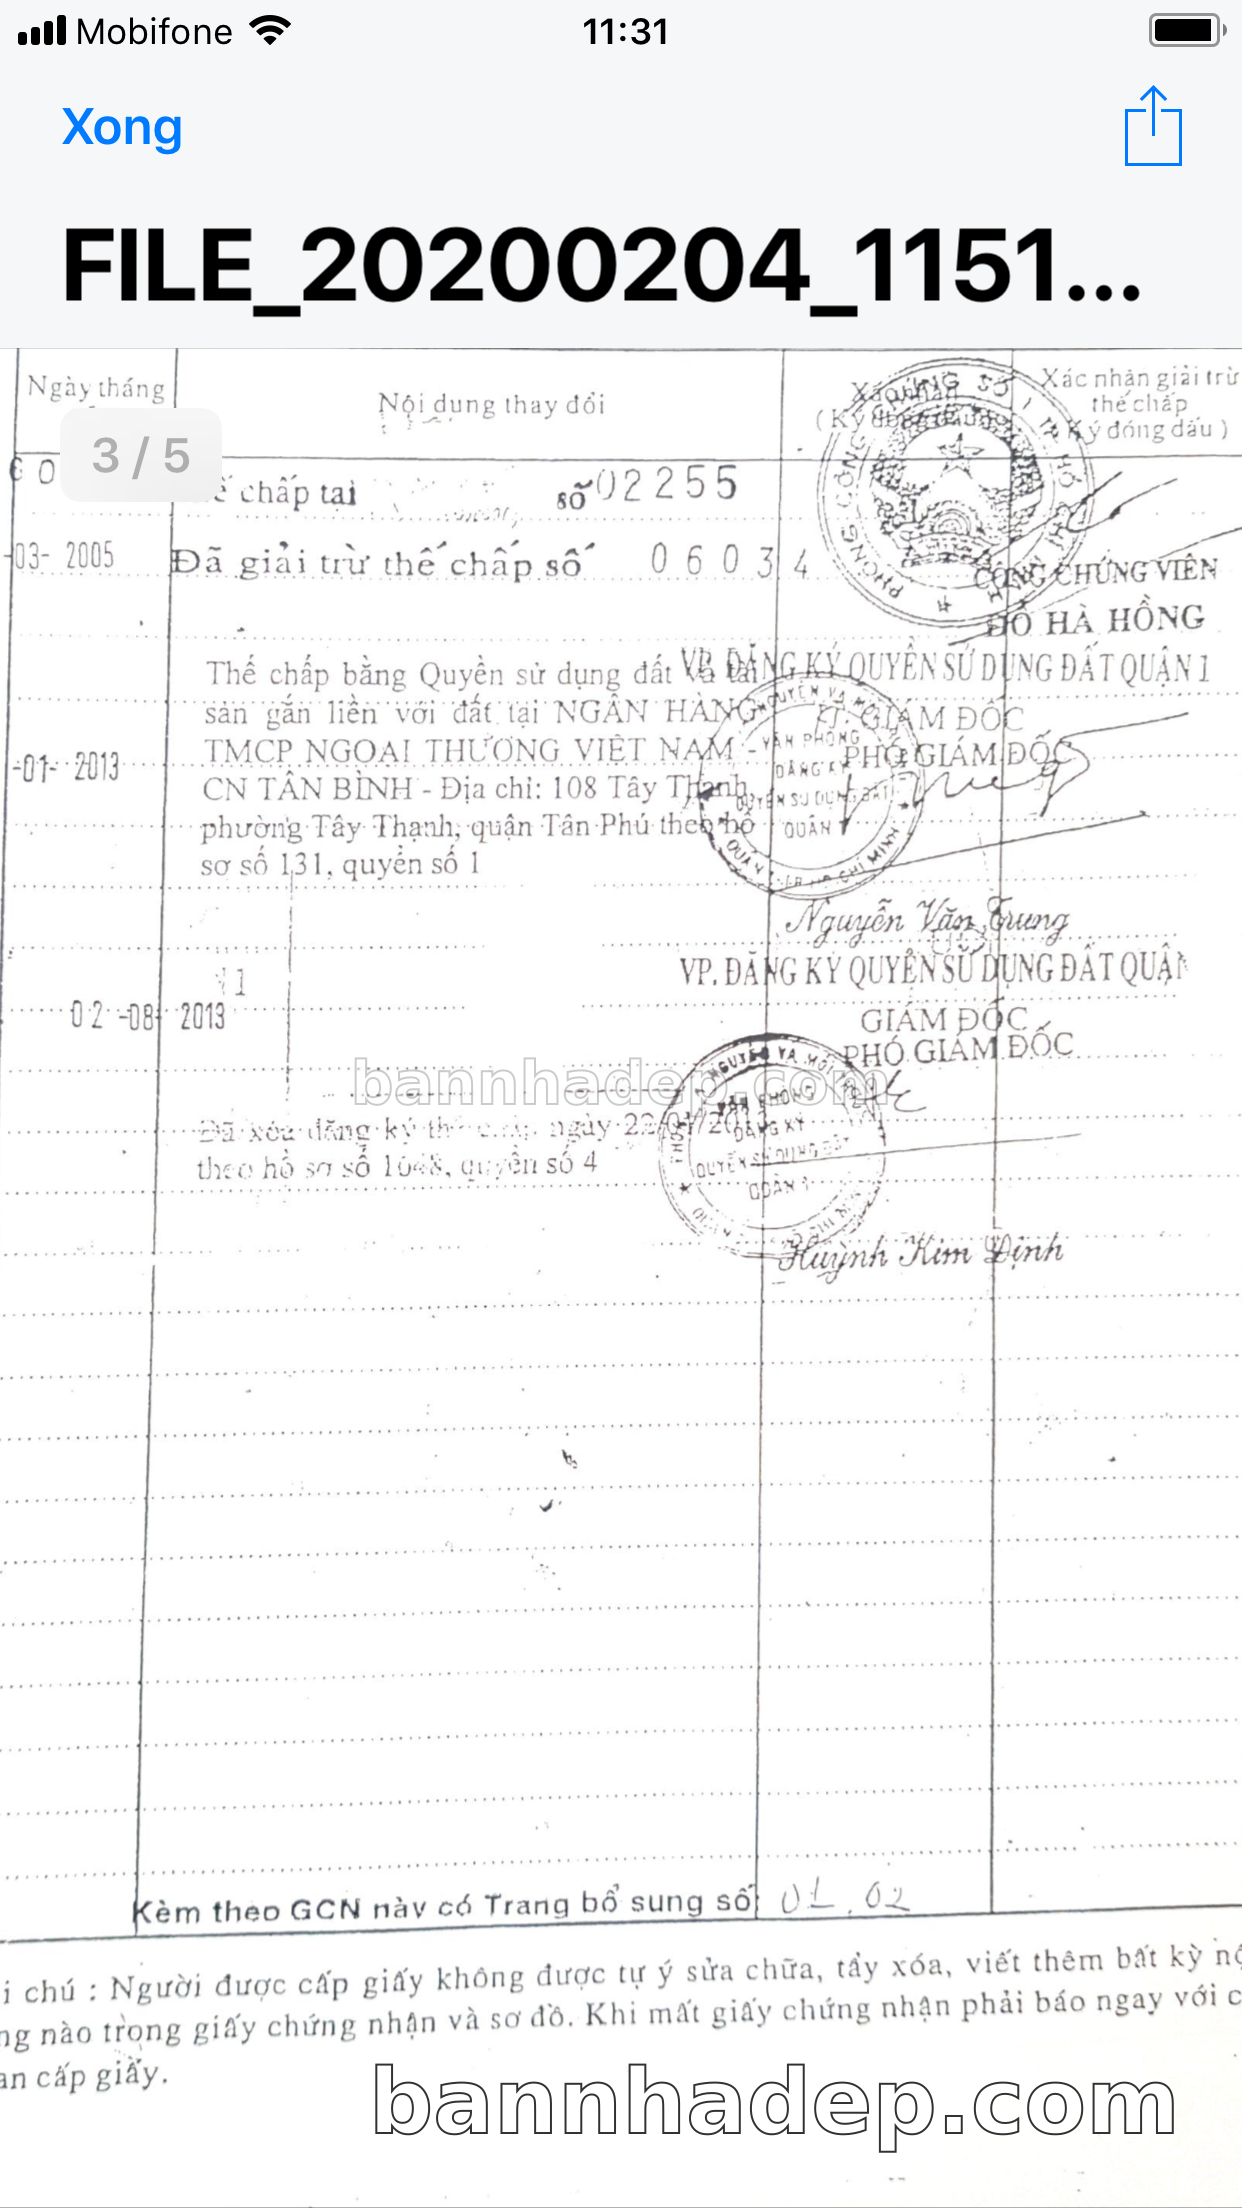 Mobifone
11:31
Xong
FILE_20200204_1151...
3 / 5
Ngày tháng
Nội dung thay đổi
Xác nhận
Xác nhận giải trừ
thế chấp
Ký đóng dấu )
chấp tại
số 02255
-03- 2005
Đã giải trừ thế chấp số 06034
CÔNG CHỨNG VIÊN
ĐỖ HÀ HỒNG
Thế chấp bằng Quyền sử dụng đất và tài
sản gắn liền với đất tại NGÂN HÀNG
TMCP NGOẠI THƯƠNG VIỆT NAM -
CN TÂN BÌNH - Địa chỉ: 108 Tây Thạnh,
phường Tây Thạnh, quận Tân Phú theo hồ
sơ số 131, quyển số 1
-01- 2013
VP. ĐĂNG KÝ QUYỀN SỬ DỤNG ĐẤT QUẬN 1
KT. GIÁM ĐỐC
PHÓ GIÁM ĐỐC
VĂN PHÒNG
ĐĂNG KÝ
QUYỀN SỬ DỤNG ĐẤT
QUẬN 1
Nguyễn Văn Trung
VP. ĐĂNG KÝ QUYỀN SỬ DỤNG ĐẤT QUẬN
02 -08- 2013
GIÁM ĐỐC
PHÓ GIÁM ĐỐC
bannhadep.com
Đã xóa đăng ký thế chấp ngày 22/01/2013
theo hồ sơ số 1648, quyển số 4
VĂN PHÒNG
ĐĂNG KÝ
QUYỀN SỬ DỤNG ĐẤT
QUẬN 1
Huỳnh Kim Định
Kèm theo GCN này có Trang bổ sung số: 01, 02
i chú : Người được cấp giấy không được tự ý sửa chữa, tẩy xóa, viết thêm bất kỳ nộ
ng nào trong giấy chứng nhận và sơ đồ. Khi mất giấy chứng nhận phải báo ngay với c
an cấp giấy.
bannhadep.com